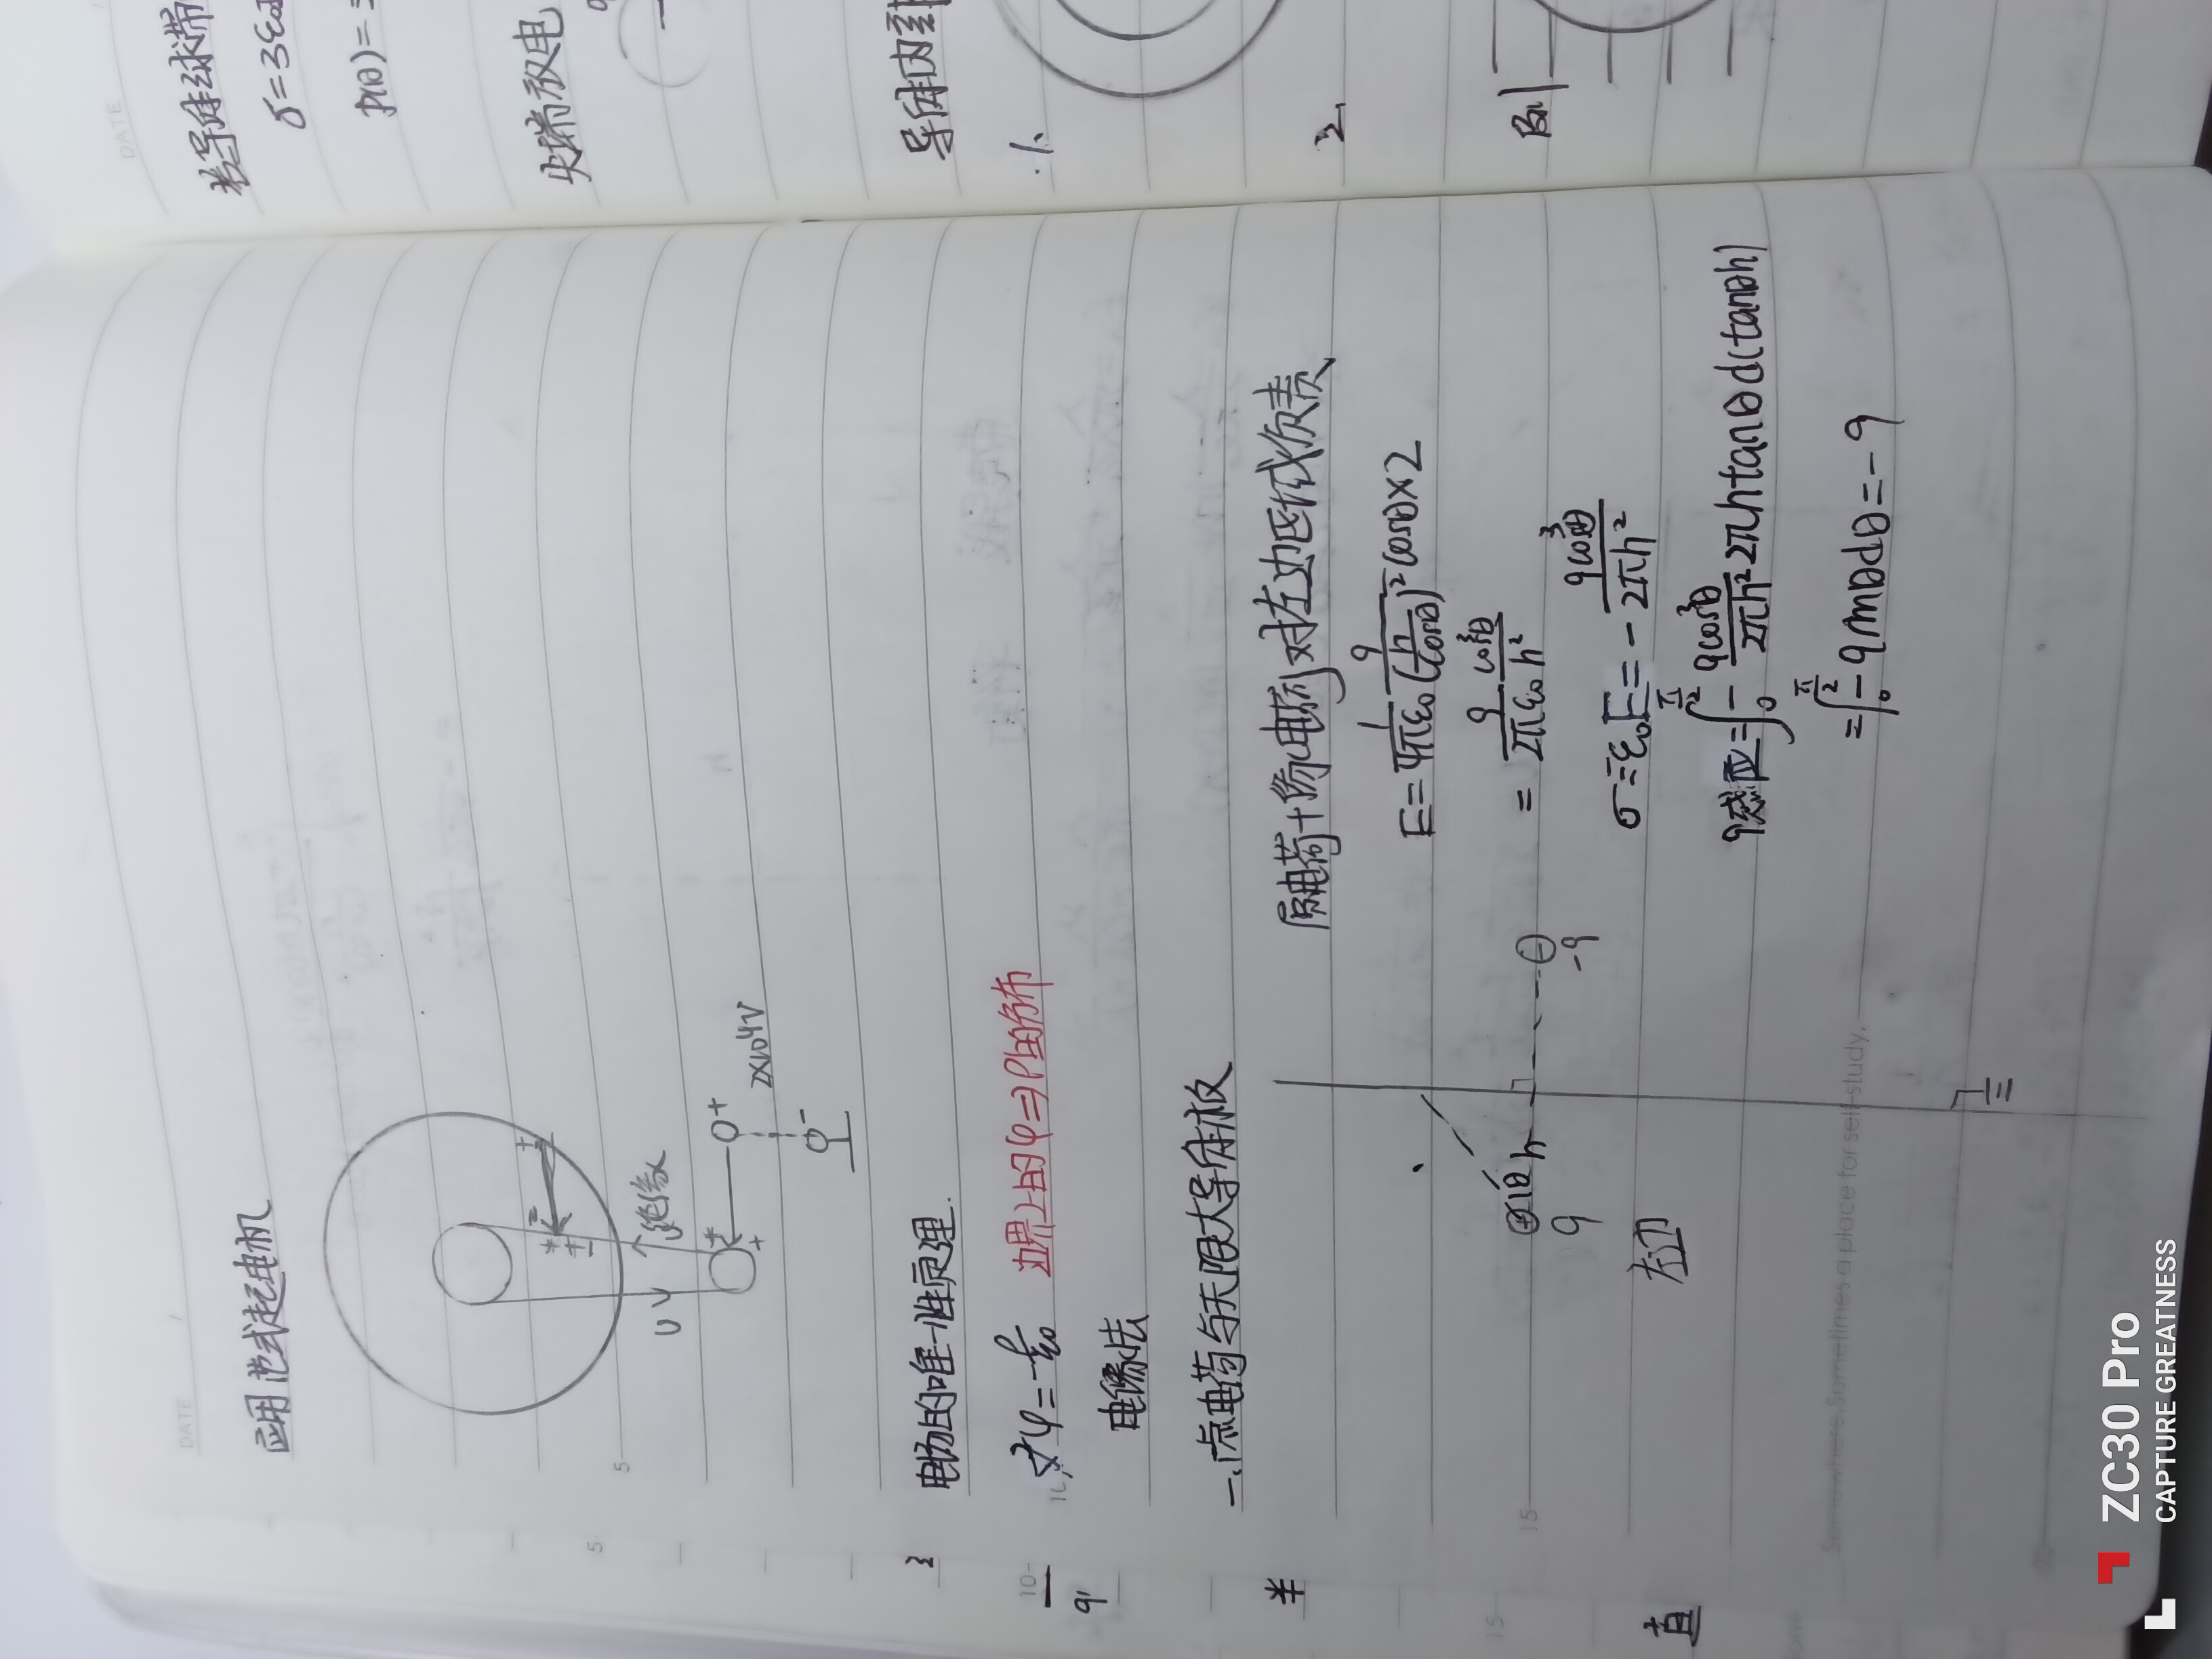 DATE /
应用 范式起电机
绝缘
2×10⁴V
电场的唯一性原理
∇²φ = -ρ/ε₀ 边界上的φ⇒ρ的分布
电像法
一、点电荷与无限大导体板
原电荷+像电荷对左边区域负责
E = 1/4πε₀ q/(h/cosθ)² cosθ×2
= q/2πε₀ cos³θ/h²
σ = -ε₀E = - qcos³θ/2πh²
q感应 = ∫₀^(π/2) - qcos³θ/2πh² 2πhtanθd(tanθh)
= ∫₀^(π/2) -qsinθdθ = -q
θ h
q
-q
左边
Somewhere, Sometimes a place for self-study.
5
10
15
DATE
尖端放电
导体内
1.
2.
ZC30 Pro
CAPTURE GREATNESS